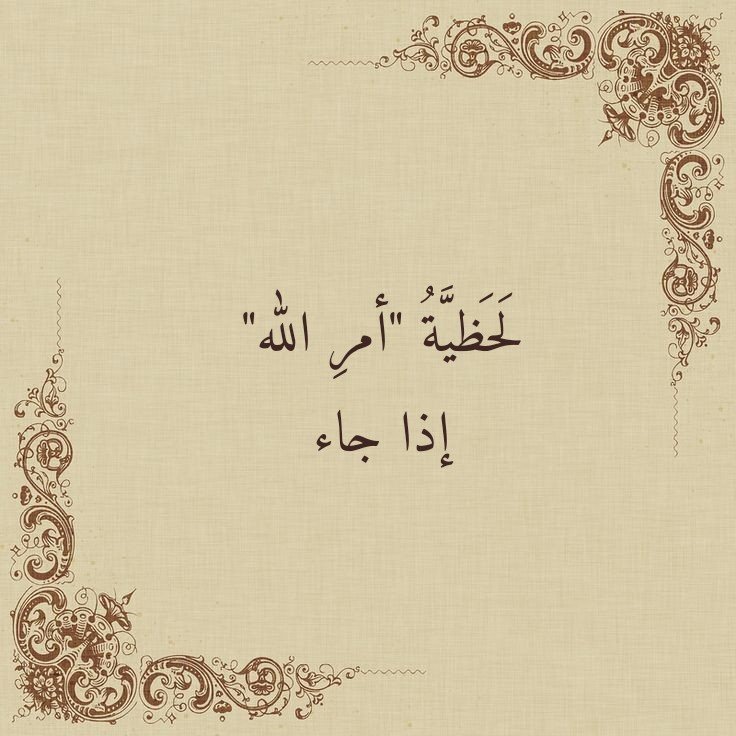 لَحَظَيَّةُ "أمرِ الله"
إذا جاء